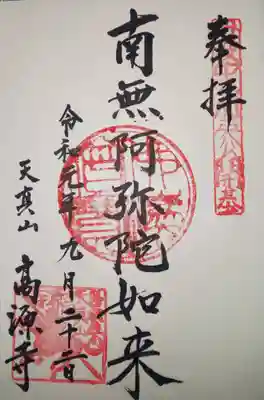 奉拝
南無阿弥陀如来
令和元年九月二十二日
天真山
高源寺